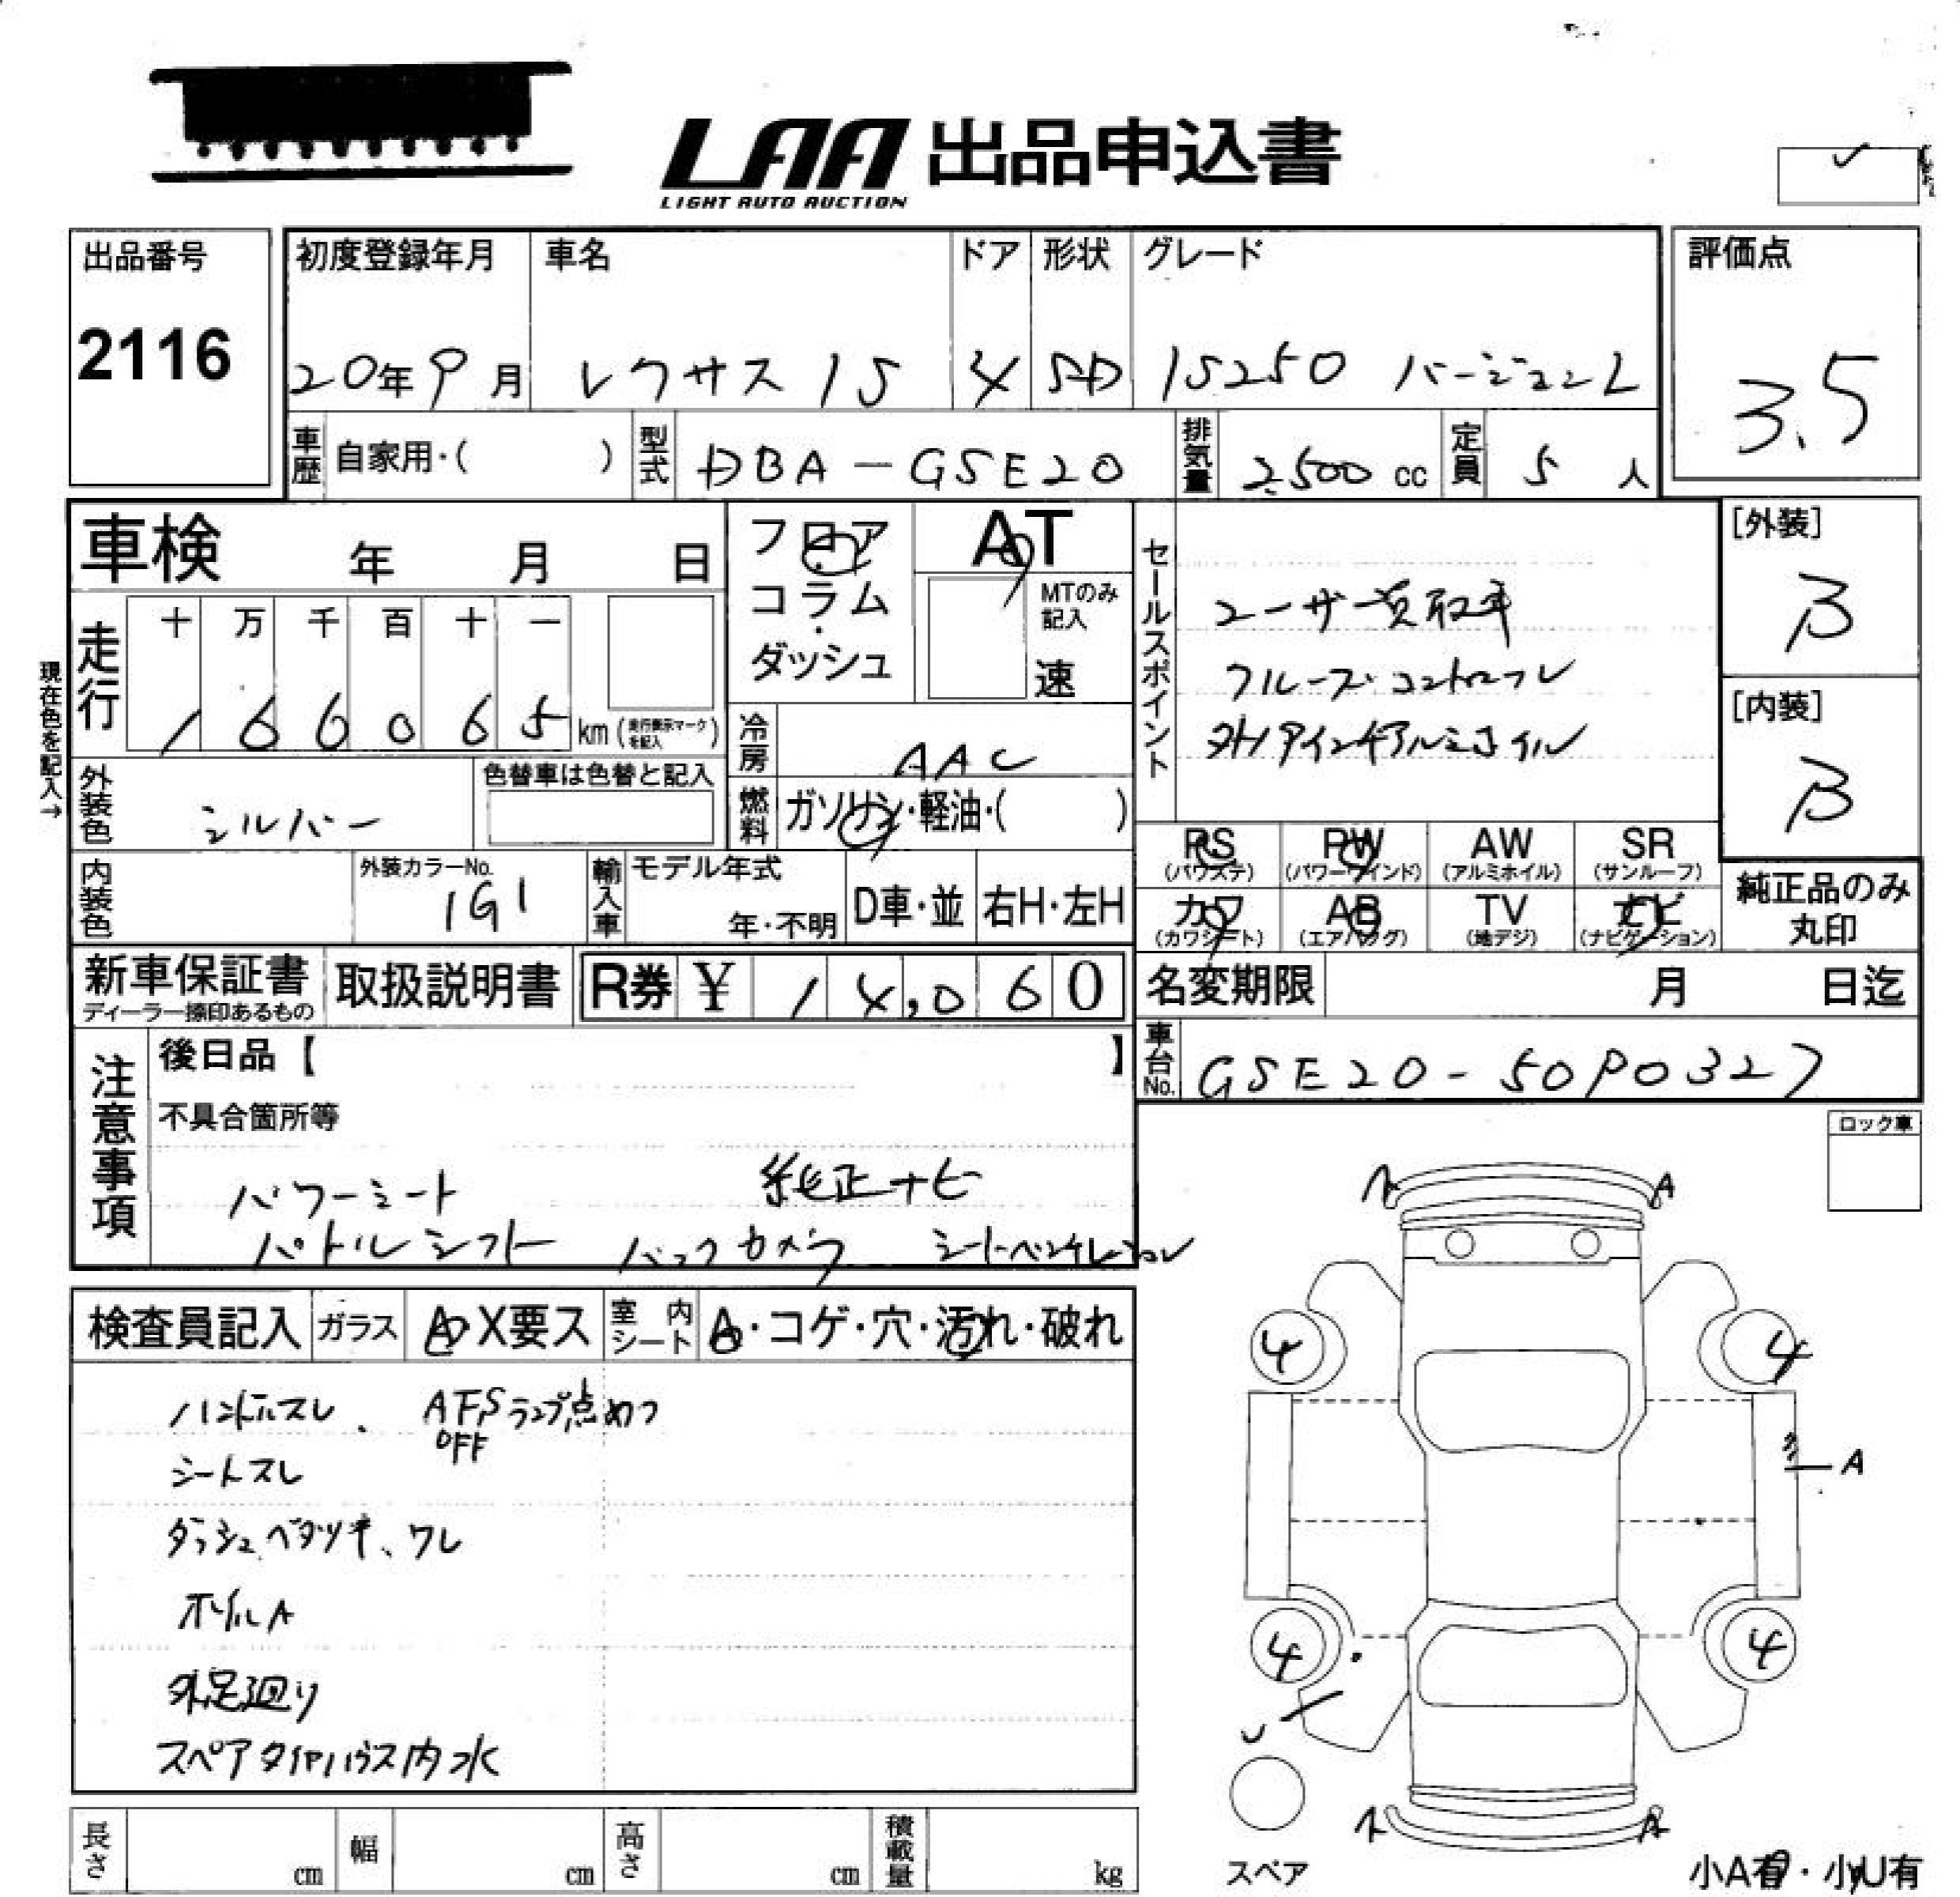 LAA 出品申込書
LIGHT AUTO AUCTION
出品番号
2116
初度登録年月 車名 ドア 形状 グレード
20年9月 レクサス IS 4 SD IS250 バージョンL
評価点
3.5
車歴 自家用・( ) 型式 DBA-GSE20 排気量 2,500 cc 定員 5 人
車検 年 月 日
フロア・コラム・ダッシュ
AT
MTのみ記入
速
セールスポイント
ユーザー買取車
クルーズコントロール
外17インチアルミホイル
[外装]
B
[内装]
B
現在色を記入→
走行
十 万 千 百 十 一
1 6 6 0 6 5 km (走行表示マークを記入)
冷房 AAC
燃料 ガソリン・軽油・( )
外装色 シルバー
色替車は色替と記入
内装色
外装カラーNo.
1G1
輸入車 モデル年式
年・不明
D車・並 右H・左H
PS (パワステ) PW (パワーウインド) AW (アルミホイル) SR (サンルーフ)
カワ (カワシート) AB (エアバッグ) TV (地デジ) ナビ (ナビゲーション)
純正品のみ
丸印
新車保証書
ディーラー捺印あるもの
取扱説明書
R券 ¥ 14,060
名変期限 月 日迄
車台No. GSE20-5090327
注意事項
後日品【 】
不具合箇所等
パワーシート 純正ナビ
パドルシフト バックカメラ シートベンチレーション
ロック車
検査員記入 ガラス A・X要ス 室内シート A・コゲ・穴・汚れ・破れ
ハンドルスレ、 AFS ランプ点めつ
OFF
シートスレ
ダッシュベタツキ、ワレ
ホイルA
外足廻り
スペアタイヤハウス内水
A
A
4 4
A
4 4
A
スペア
小A有・小U有
長さ cm 幅 cm 高さ cm 積載量 kg